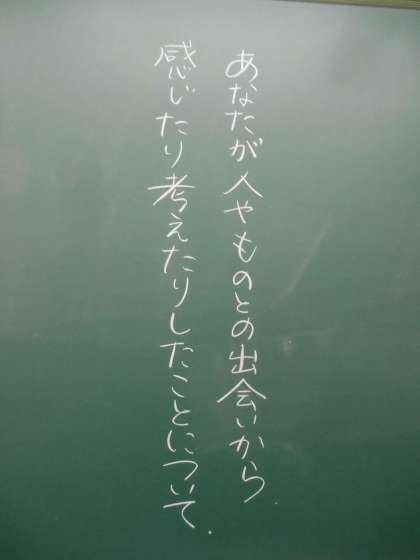 あなたが人やものとの出会いから
感じたり考えたりしたことについて.